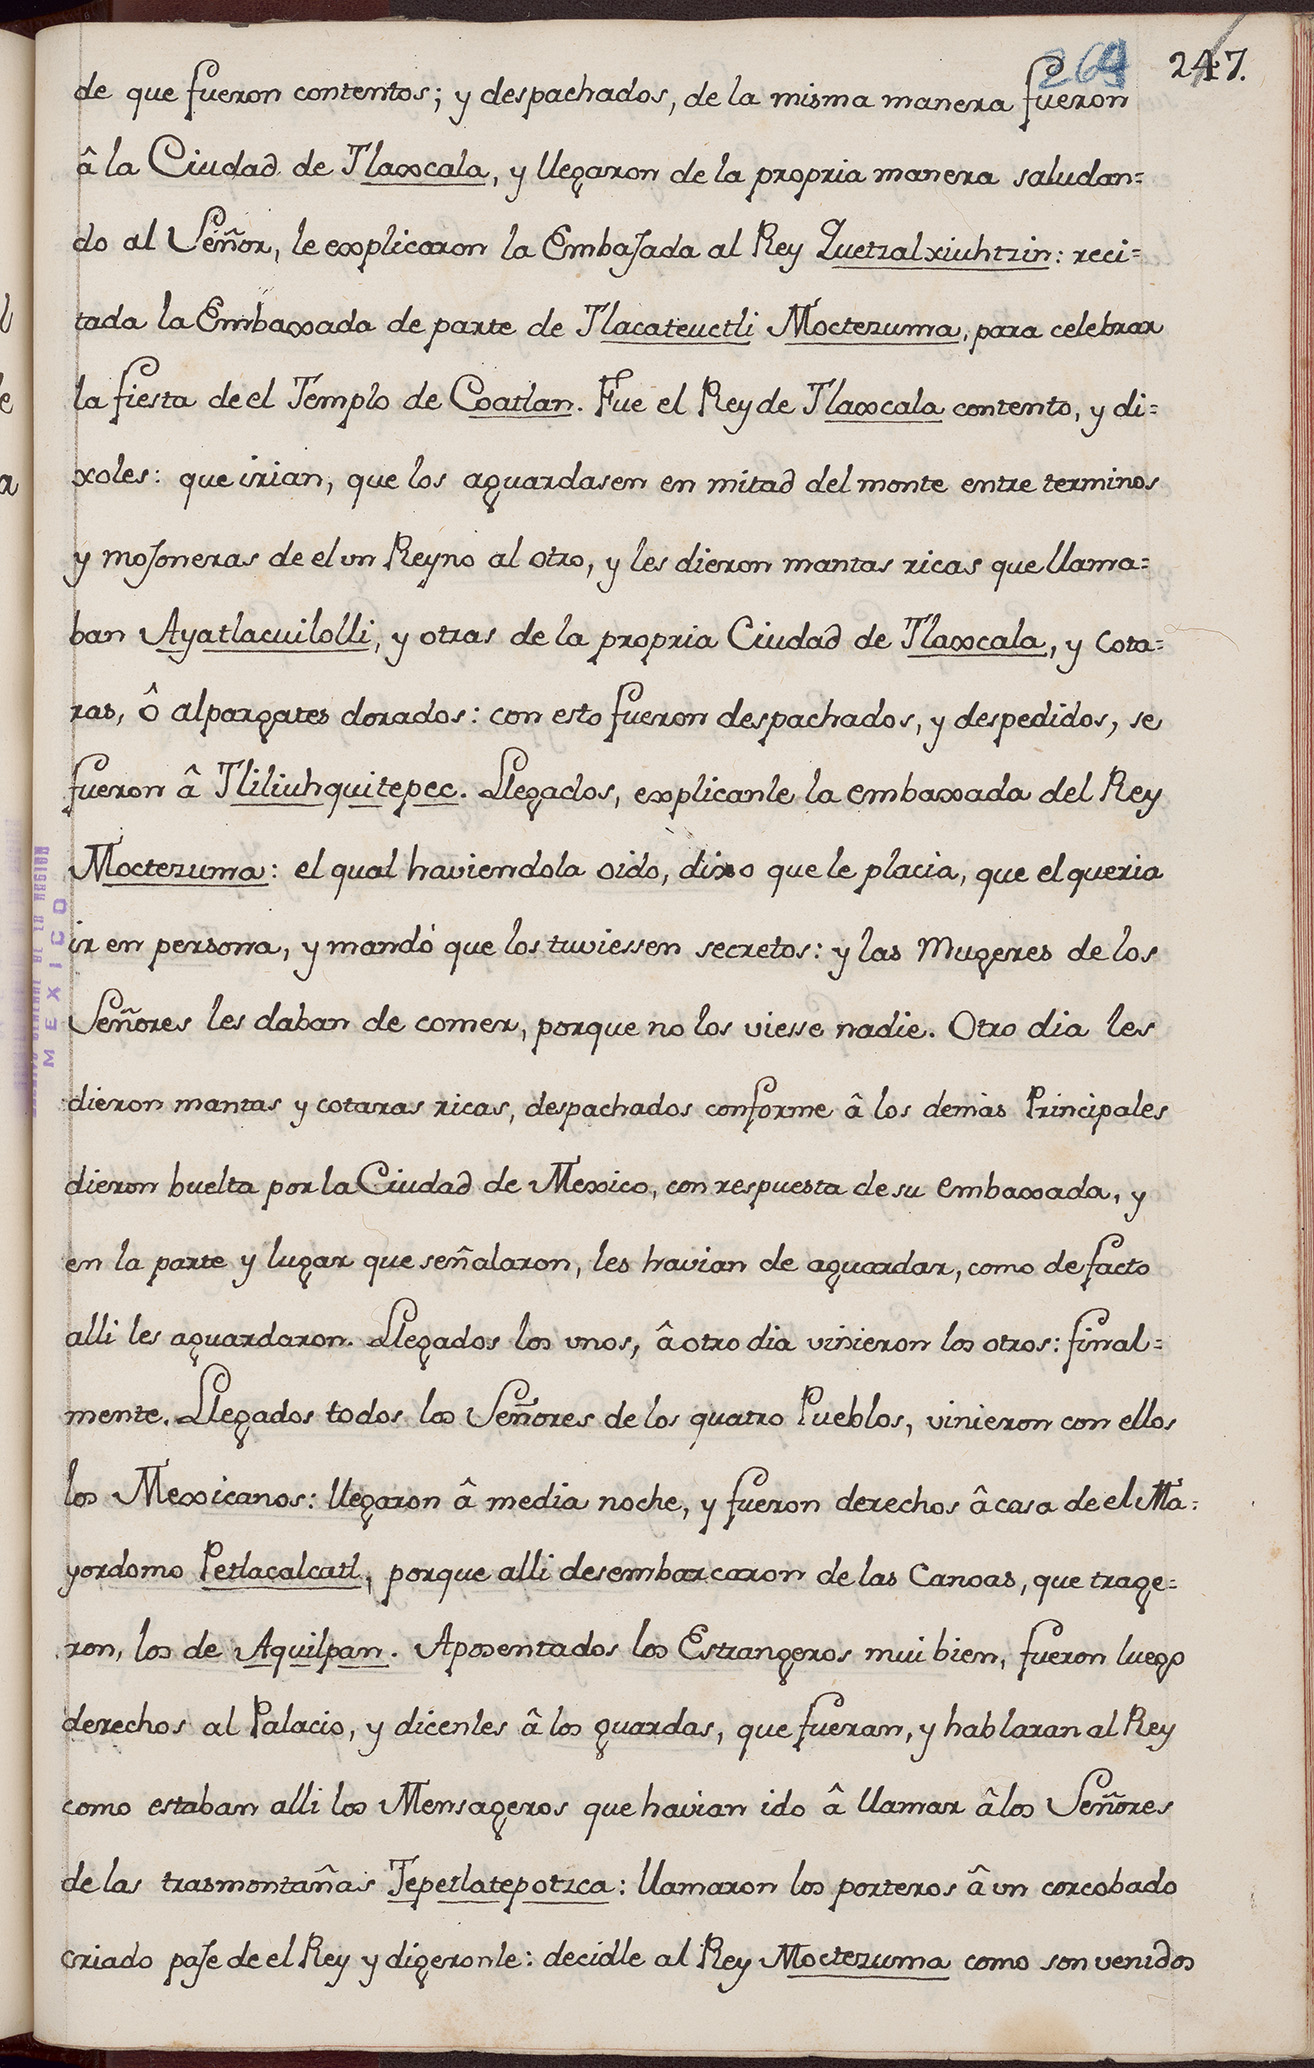 264 247.
de que fueron contentos; y despachados, de la misma manera fueron
â la Ciudad de Tlaxcala, y llegaron de la propria manera saludan=
do al Señor, le explicaron la Embajada al Rey Quetzalxiuhtzin: reci=
tada la Embaxada de parte de Tlacateuctli Moctezuma, para celebrar
la fiesta de el Templo de Coatlan. Fue el Rey de Tlaxcala contento, y di=
xoles: que irian, que los aguardasen en mitad del monte entre terminos
y mojoneras de el un Reyno al otro, y les dieron mantas ricas que llama=
ban Ayatlacuilolli, y otras de la propria Ciudad de Tlaxcala, y cota=
ras, ô alpargates dorados: con esto fueron despachados, y despedidos, se
fueron â Tliliuhquitepec. Llegados, explicanle la embaxada del Rey
Moctezuma: el qual haviendola oido, dixo que le placia, que el queria
ir en persona, y mandó que los tuviessen secretos: y las Mugeres de los
Señores les daban de comer, porque no los viesse nadie. Otro dia les
dieron mantas y cotaras ricas, despachados conforme â los demas Principales
dieron buelta por la Ciudad de Mexico, con respuesta de su embaxada, y
en la parte y lugar que señalaron, les havian de aguardar, como de facto
alli les aguardaron. Llegados los unos, â otro dia vinieron los otros: final=
mente. Llegados todos los Señores de los quatro Pueblos, vinieron con ellos
los Mexicanos: llegaron â media noche, y fueron derechos â casa de el Ma=
yordomo Petlacalcatl, porque alli desembarcaron de las Canoas, que trage=
ron, los de Aquilpan. Aposentados los Estrangeros mui bien, fueron luego
derechos al Palacio, y dicenles â los guardas, que fueran, y hablaran al Rey
como estaban alli los Mensageros que havian ido â llamar â los Señores
de las trasmontañas Tepetlatepotzca: llamaron los porteros â un corcobado
criado paje de el Rey y digeronle: decidle al Rey Moctezuma como son venidos
MEXICO